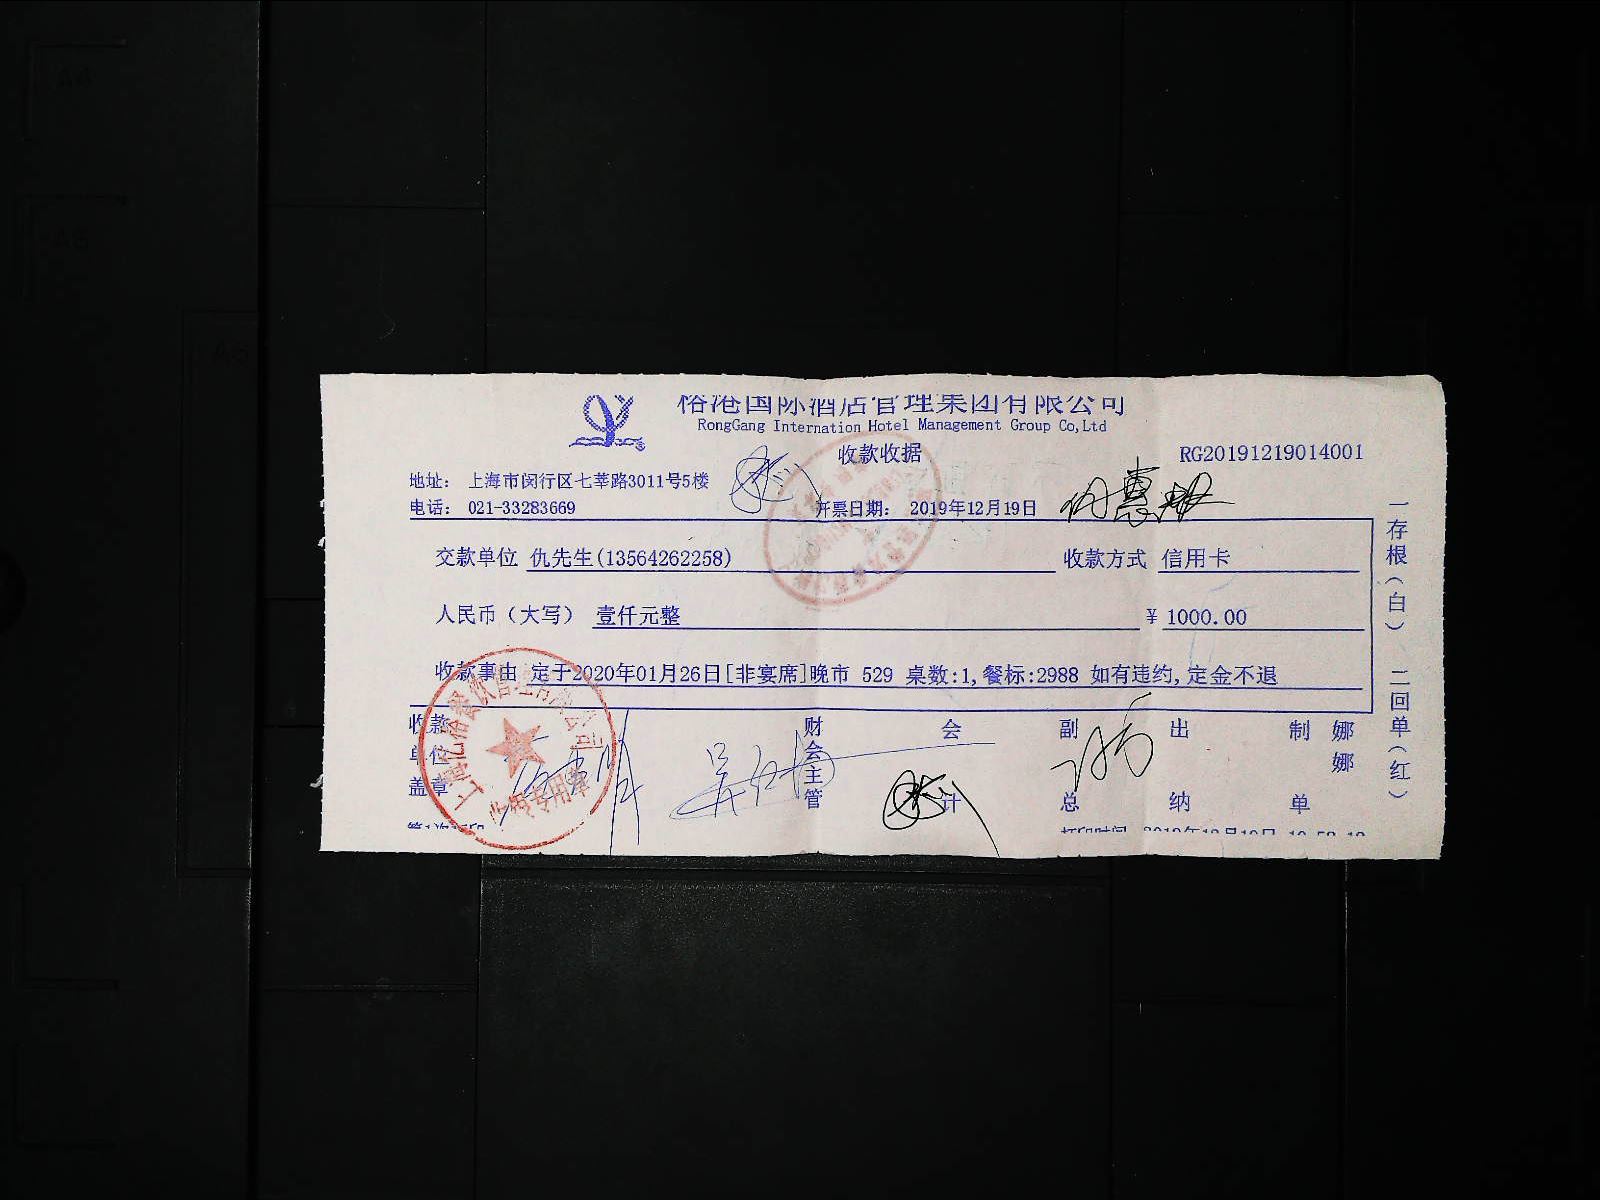 俗港国际酒店管理集团有限公司
RongGang Internation Hotel Management Group Co,Ltd
收款收据
RG20191219014001
地址： 上海市闵行区七莘路3011号5楼
电话： 021-33283669
开票日期： 2019年12月19日
交款单位 仇先生(13564262258)
收款方式 信用卡
人民币（大写） 壹仟元整
¥ 1000.00
收款事由 定于2020年01月26日[非宴席]晚市 529 桌数:1,餐标:2988 如有违约,定金不退
收款单位盖章
财会主管
会计
副总
出纳
制单
娜娜
一存根（白） 二回单（红）